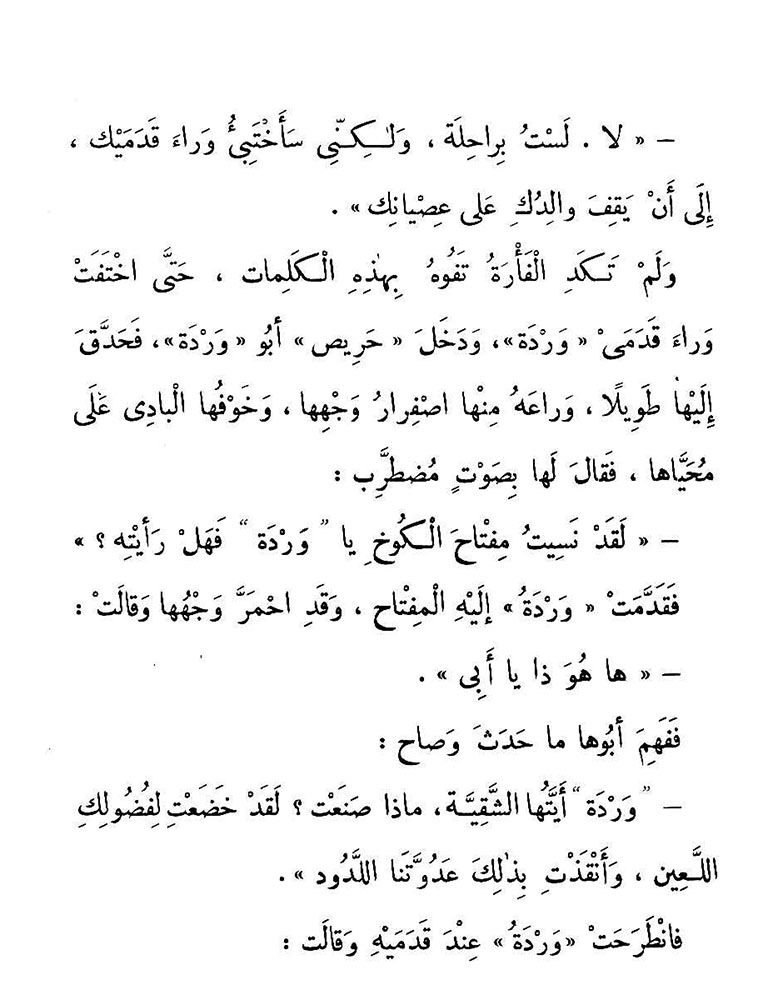 – « لا . لَسْتُ بِراحِلَة ، وَلٰـكِـنّـِى سَأَخْتَبِئُ وَراءَ قَدَمَيْك ،
إِلَى أَنْ يَقِفَ والِدُكِ عَلى عِصْيانِك » .
وَلَمْ تَـكَدِ الْفَأْرَةُ تَفُوهُ بِهٰذِهِ الْـكَلِمات ، حَتَّى اخْتَفَتْ
وَراءَ قَدَمَىْ « وَرْدَة »، وَدَخَلَ « حَرِيص » أَبُو « وَرْدَة »، فَحَدَّقَ
إِلَيْها طَوِيلًا ، وَراعَهُ مِنْها اصْفِرارُ وَجْهِها ، وَخَوْفُها الْبادِى عَلَى
مُحَيَّاها ، فَقالَ لَها بِصَوْتٍ مُضطرَّب :
– « لَقَدْ نَسِيتُ مِفْتاحَ الْـكُوخِ يا ” وَرْدَة “ فَهَلْ رَأَيْتِه ؟ »
فَقَدَّمَتْ « وَرْدَةُ » إِلَيْهِ الْمِفْتاح ، وَقَدِ احْمَرَّ وَجْهُها وَقالَتْ :
– « ها هُوَ ذا يا أَبِى » .
فَفَهِمَ أَبُوها ما حَدَثَ وَصاح :
– ” وَرْدَة “ أَيَّتُها الشَّقِيَّـة ، ماذا صَنَعْت ؟ لَقَدْ خَضَعْتِ لِفُضُولِكِ
اللَّـعِين ، وَأَنْقَذْتِ بِذٰلِكَ عَدُوَّتَنا اللَّدُود » .
فانْطَرَحَتْ « وَرْدَةُ » عِنْدَ قَدَمَيْهِ وَقالَت :